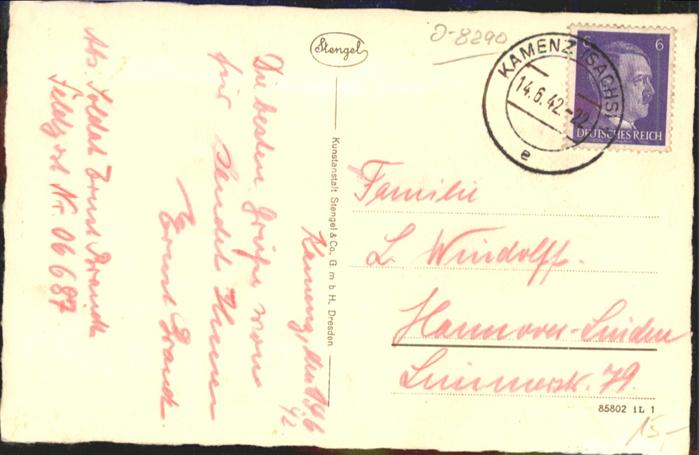 Stengel
D-8290
KAMENZ (SACHS)
14.6.42.-22
e
6 6
DEUTSCHES REICH
Kamenz, den 14/6
42.
Die besten Grüße von
hier sendet Ihnen
Ernst Brandt.
Abs. Soldat Ernst Brandt
Feldpost Nr. 06687
Kunstanstalt Stengel & Co. G. m. b. H., Dresden
Familie
L. Windolff.
Hannover-Linden
Limmerstr. 79.
85802 IL 1
15,-